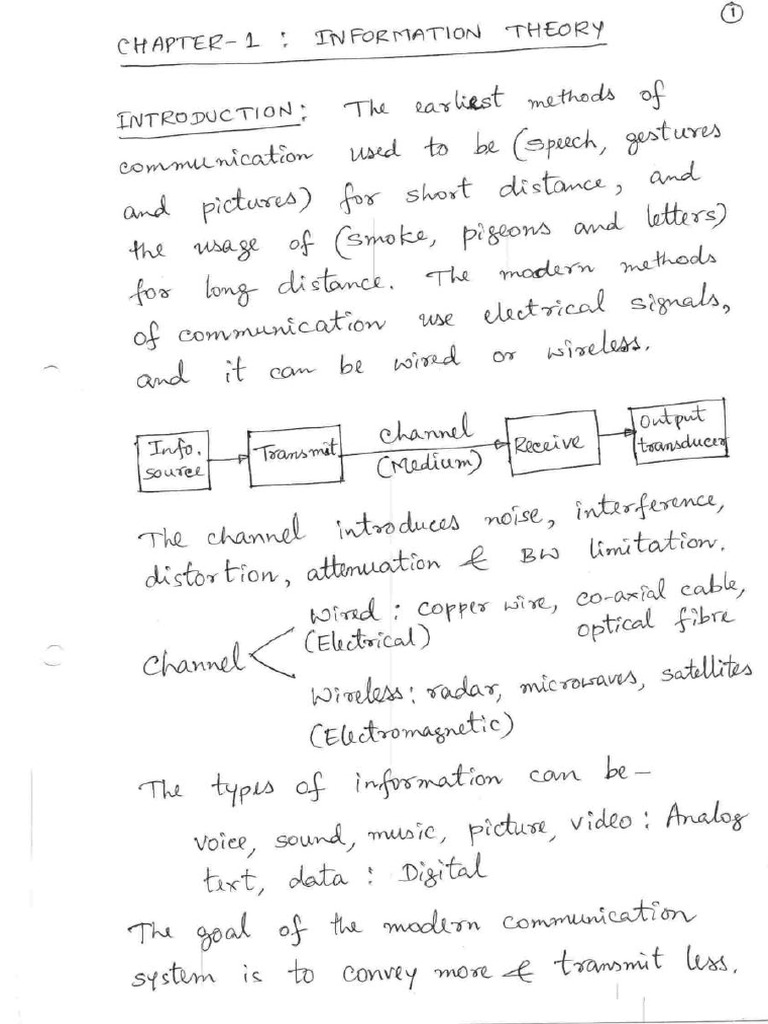 ①
CHAPTER-1 : INFORMATION THEORY
INTRODUCTION: The earliest methods of
communication used to be (speech, gestures
and pictures) for short distance, and
the usage of (smoke, pigeons and letters)
for long distance. The modern methods
of communication use electrical signals,
and it can be wired or wireless.
Info. source
Transmit
Channel
(Medium)
Receive
Output transducer
The channel introduces noise, interference,
distortion, attenuation & BW limitation.
Wired : copper wire, co-axial cable,
(Electrical) optical fibre
Channel
Wireless : radar, microwaves, satellites
(Electromagnetic)
The types of information can be –
voice, sound, music, picture, video : Analog
text, data : Digital
The goal of the modern communication
system is to convey more & transmit less.